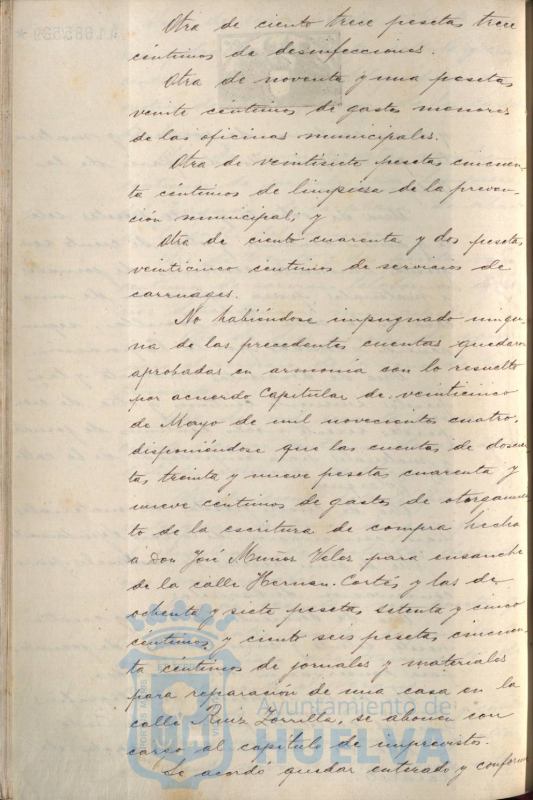 Otra de ciento trece pesetas trece
céntimos de desinfecciones.
Otra de noventa y una pesetas
veinte céntimos de gastos menores
de las oficinas municipales.
Otra de veintisiete pesetas cincuen-
ta céntimos de limpieza de la preven-
ción municipal; y
Otra de ciento cuarenta y dos pesetas
veinticinco centimos de servicios de
carruages.
No habiéndose impugnado ningu-
na de las precedentes cuentas quedaron
aprobadas en armonia con lo resuelto
por acuerdo Capitular de veinticinco
de Mayo de mil novecientos cuatro,
disponiéndose que las cuentas de doscien-
tas treinta y nueve pesetas cuarenta y
nueve céntimos de gastos de otorgamien-
to de la escritura de compra hecha
a Don José Muñoz Velez para ensanche
de la calle Hernan-Cortés, y las de
ochenta y siete pesetas, setenta y cinco
céntimos, y ciento seis pesetas cincuen-
ta céntimos de jornales y materiales
para reparación de una casa en la
calle Ruiz Zorrilla, se abonen con
cargo al capitulo de imprevistos.
Se acordó quedar enterado y conforme
Ayuntamiento de
HUELVA